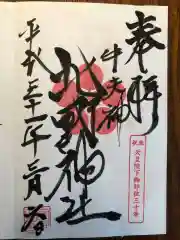 奉拝
奉祝
天皇陛下御即位三十年
牛天神
北野神社
平成三十一年